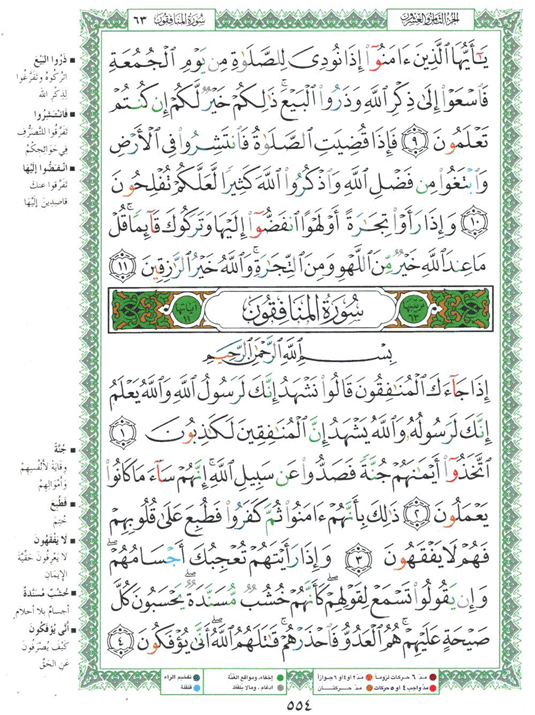 الجزء الثامن والعشرون
سورة المنافقون ٦٣
يَٰٓأَيُّهَا ٱلَّذِينَ ءَامَنُوٓا۟ إِذَا نُودِىَ لِلصَّلَوٰةِ مِن يَوْمِ ٱلْجُمُعَةِ
فَٱسْعَوْا۟ إِلَىٰ ذِكْرِ ٱللَّهِ وَذَرُوا۟ ٱلْبَيْعَ ۚ ذَٰلِكُمْ خَيْرٌ لَّكُمْ إِن كُنتُمْ
تَعْلَمُونَ ٩ فَإِذَا قُضِيَتِ ٱلصَّلَوٰةُ فَٱنتَشِرُوا۟ فِى ٱلْأَرْضِ
وَٱبْتَغُوا۟ مِن فَضْلِ ٱللَّهِ وَٱذْكُرُوا۟ ٱللَّهَ كَثِيرًا لَّعَلَّكُمْ تُفْلِحُونَ
١٠ وَإِذَا رَأَوْا۟ تِجَٰرَةً أَوْ لَهْوًا ٱنفَضُّوٓا۟ إِلَيْهَا وَتَرَكُوكَ قَآئِمًا ۚ قُلْ
مَا عِندَ ٱللَّهِ خَيْرٌ مِّنَ ٱللَّهْوِ وَمِنَ ٱلتِّجَٰرَةِ ۚ وَٱللَّهُ خَيْرُ ٱلرَّٰزِقِينَ ١١
ترتيبها ٦٣ سُورَةُ المُنَافِقُونَ آياتها ١١
بِسْمِ ٱللَّهِ ٱلرَّحْمَٰنِ ٱلرَّحِيمِ
إِذَا جَآءَكَ ٱلْمُنَٰفِقُونَ قَالُوا۟ نَشْهَدُ إِنَّكَ لَرَسُولُ ٱللَّهِ ۗ وَٱللَّهُ يَعْلَمُ
إِنَّكَ لَرَسُولُهُۥ وَٱللَّهُ يَشْهَدُ إِنَّ ٱلْمُنَٰفِقِينَ لَكَٰذِبُونَ ١
ٱتَّخَذُوٓا۟ أَيْمَٰنَهُمْ جُنَّةً فَصَدُّوا۟ عَن سَبِيلِ ٱللَّهِ ۚ إِنَّهُمْ سَآءَ مَا كَانُوا۟
يَعْمَلُونَ ٢ ذَٰلِكَ بِأَنَّهُمْ ءَامَنُوا۟ ثُمَّ كَفَرُوا۟ فَطُبِعَ عَلَىٰ قُلُوبِهِمْ
فَهُمْ لَا يَفْقَهُونَ ٣ ۞ وَإِذَا رَأَيْتَهُمْ تُعْجِبُكَ أَجْسَامُهُمْ ۖ
وَإِن يَقُولُوا۟ تَسْمَعْ لِقَوْلِهِمْ ۖ كَأَنَّهُمْ خُشُبٌ مُّسَنَّدَةٌ ۖ يَحْسَبُونَ كُلَّ
صَيْحَةٍ عَلَيْهِمْ ۚ هُمُ ٱلْعَدُوُّ فَٱحْذَرْهُمْ ۚ قَٰتَلَهُمُ ٱللَّهُ ۖ أَنَّىٰ يُؤْفَكُونَ ٤
ذَرُوا البَيْعَ
اتركوه وتفرّغوا
لذكر الله
فَانتَشِرُوا
تفرّقوا للتصرّف
في حوائجكم
انفَضُّوا إِلَيْهَا
تفرّقوا عنك
قاصدين إليها
جُنَّةً
وقاية لأنفسهم
وأموالهم
فَطُبِعَ
ختم
لَا يَفْقَهُونَ
لا يعرفون حقّيّة
الإيمان
خُشُبٌ مُسَنَّدَةٌ
أجسام بلا أحلام
أَنَّى يُؤْفَكُونَ
كيف يُصرفون
عن الحق
مدّ ٦ حركات لزوماً
مدّ ٢ أو ٤ أو ٦ جوازاً
إخفاء، ومواقع الغنّة
تفخيم الراء
مدّ واجب ٤ أو ٥ حركات
مدّ حركتان
ادغام، وما لا يلفظ
قلقلة
٥٥٤